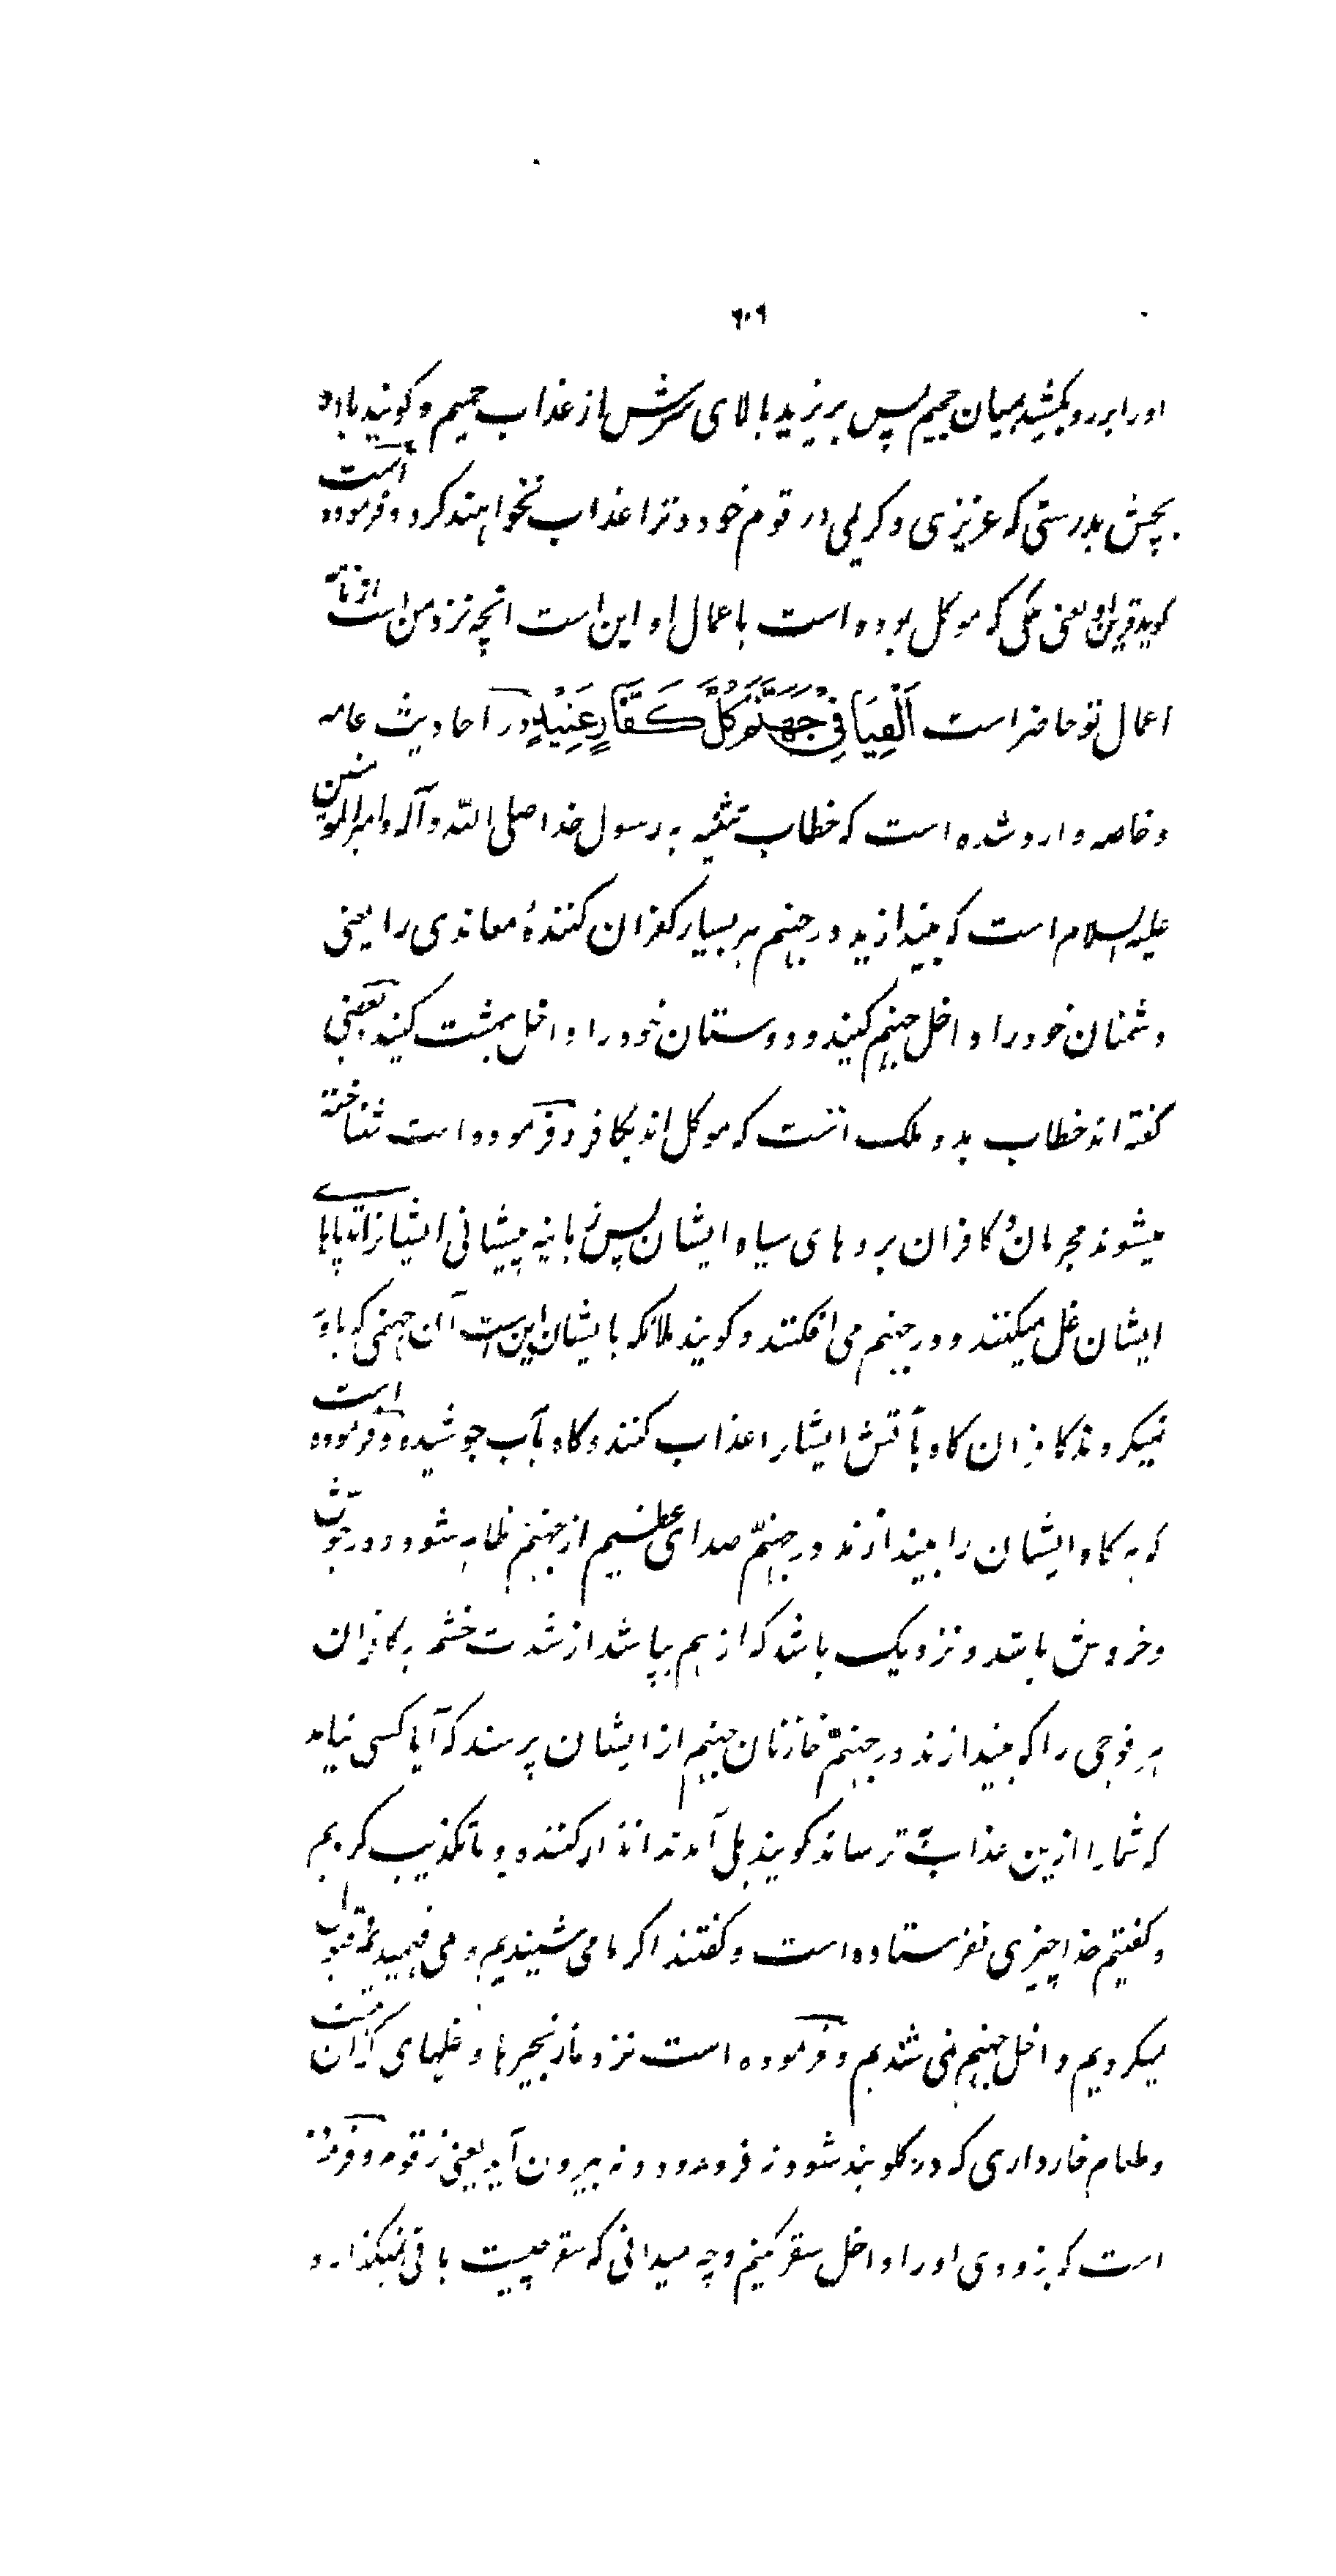 ۶۰۹
او را برو بکشید بمیان جحیم پس بریزید بالای سرش از عذاب حمیم و کویند باو
بچش بدرستی که عزیزی و کریمی در قوم خود و ترا عذاب نخواهند کرد و فرموده است
کوید قرین او یعنی ملکی که موکل بوده است باعمال او این است انچه نزد من است از نامه
اعمال تو حاضر است اَلْقِیَا فِیْ جَهَنَّمَ کُلَّ کَفَّارٍ عَنِیْدٍ در احادیث عامه
و خاصه وارد شده است که خطاب تثنیه به رسول خدا صلی الله و آله و امیر المومنین
علیه السلام است که بیندازید در جهنم هر بسیار کفران کنندهٔ معاندی را یعنی
دشمنان خود را داخل جهنم کنید و دوستان خود را داخل بهشت کنید بعضی
کفته اند خطاب بدو ملک است که موکل اند بکافر و فرموده است شناخته
میشوند مجرمان و کافران بروهای سیاه ایشان پس زبانیه پیشانی ایشانرا به پاهای
ایشان غل میکنند و در جهنم می افکنند و کویند ملائکه بایشان این است آن جهنمی که باور
نمیکردند کافران کاه بآتش ایشانرا عذاب کنند و کاه بآب جوشیده و فرموده است
که هر کاه ایشان را بیندازند در جهنّم صدای عظیم از جهنم ظاهر شود و در جوش
و خروش باشد و نزدیک باشد که از هم بپاشد از شدت خشم بر کافران
هر فوجی را که بیندازند در جهنّم خازنان جهنم از ایشان پرسند که آیا کسی نیامد
که شما را ازین عذاب ترساند کویند بلی آمدند انذار کننده و ما تکذیب کردیم
و کفتیم خدا چیزی نفرستاده است و کفتند اکر ما می شنیدیم و می فهمیدیم قبول
میکردیم داخل جهنم نمی شدیم و فرموده است نزد ما زنجیرها و غلهای کران هست
و طعام خارداری که در کلو بند شود نه فرو رود و نه بیرون آید یعنی زقوم و فرموده
است که بزودی او را داخل سقر کنیم و چه میدانی که سقر چیست باقی نمیکذارد